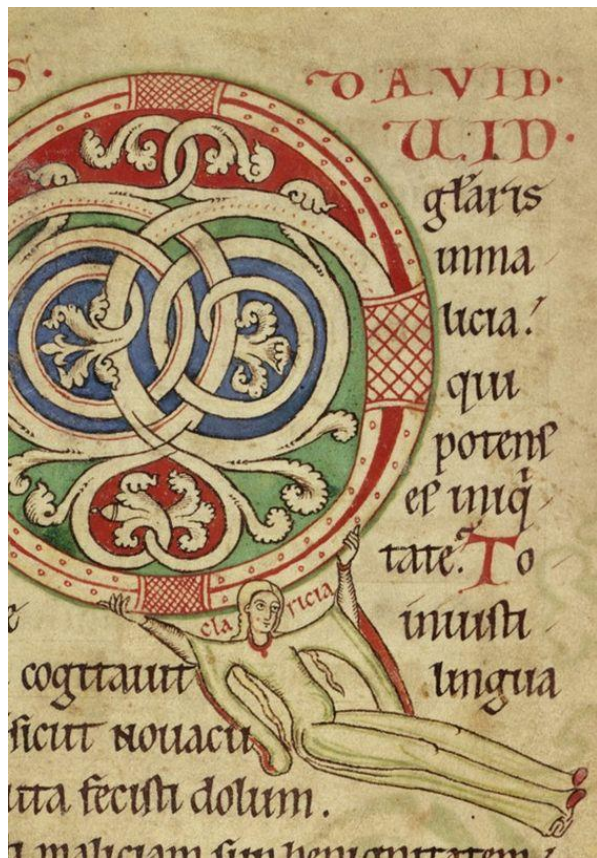 S.
DAVID.
UID.
głaris
inma
licia.
qui
potens
es iniq̇
tate. To
cla ricia
inuisti
cogitauit
lingua
sicut nouacu
uta fecisti dolum.
maliciam sup benignitatem